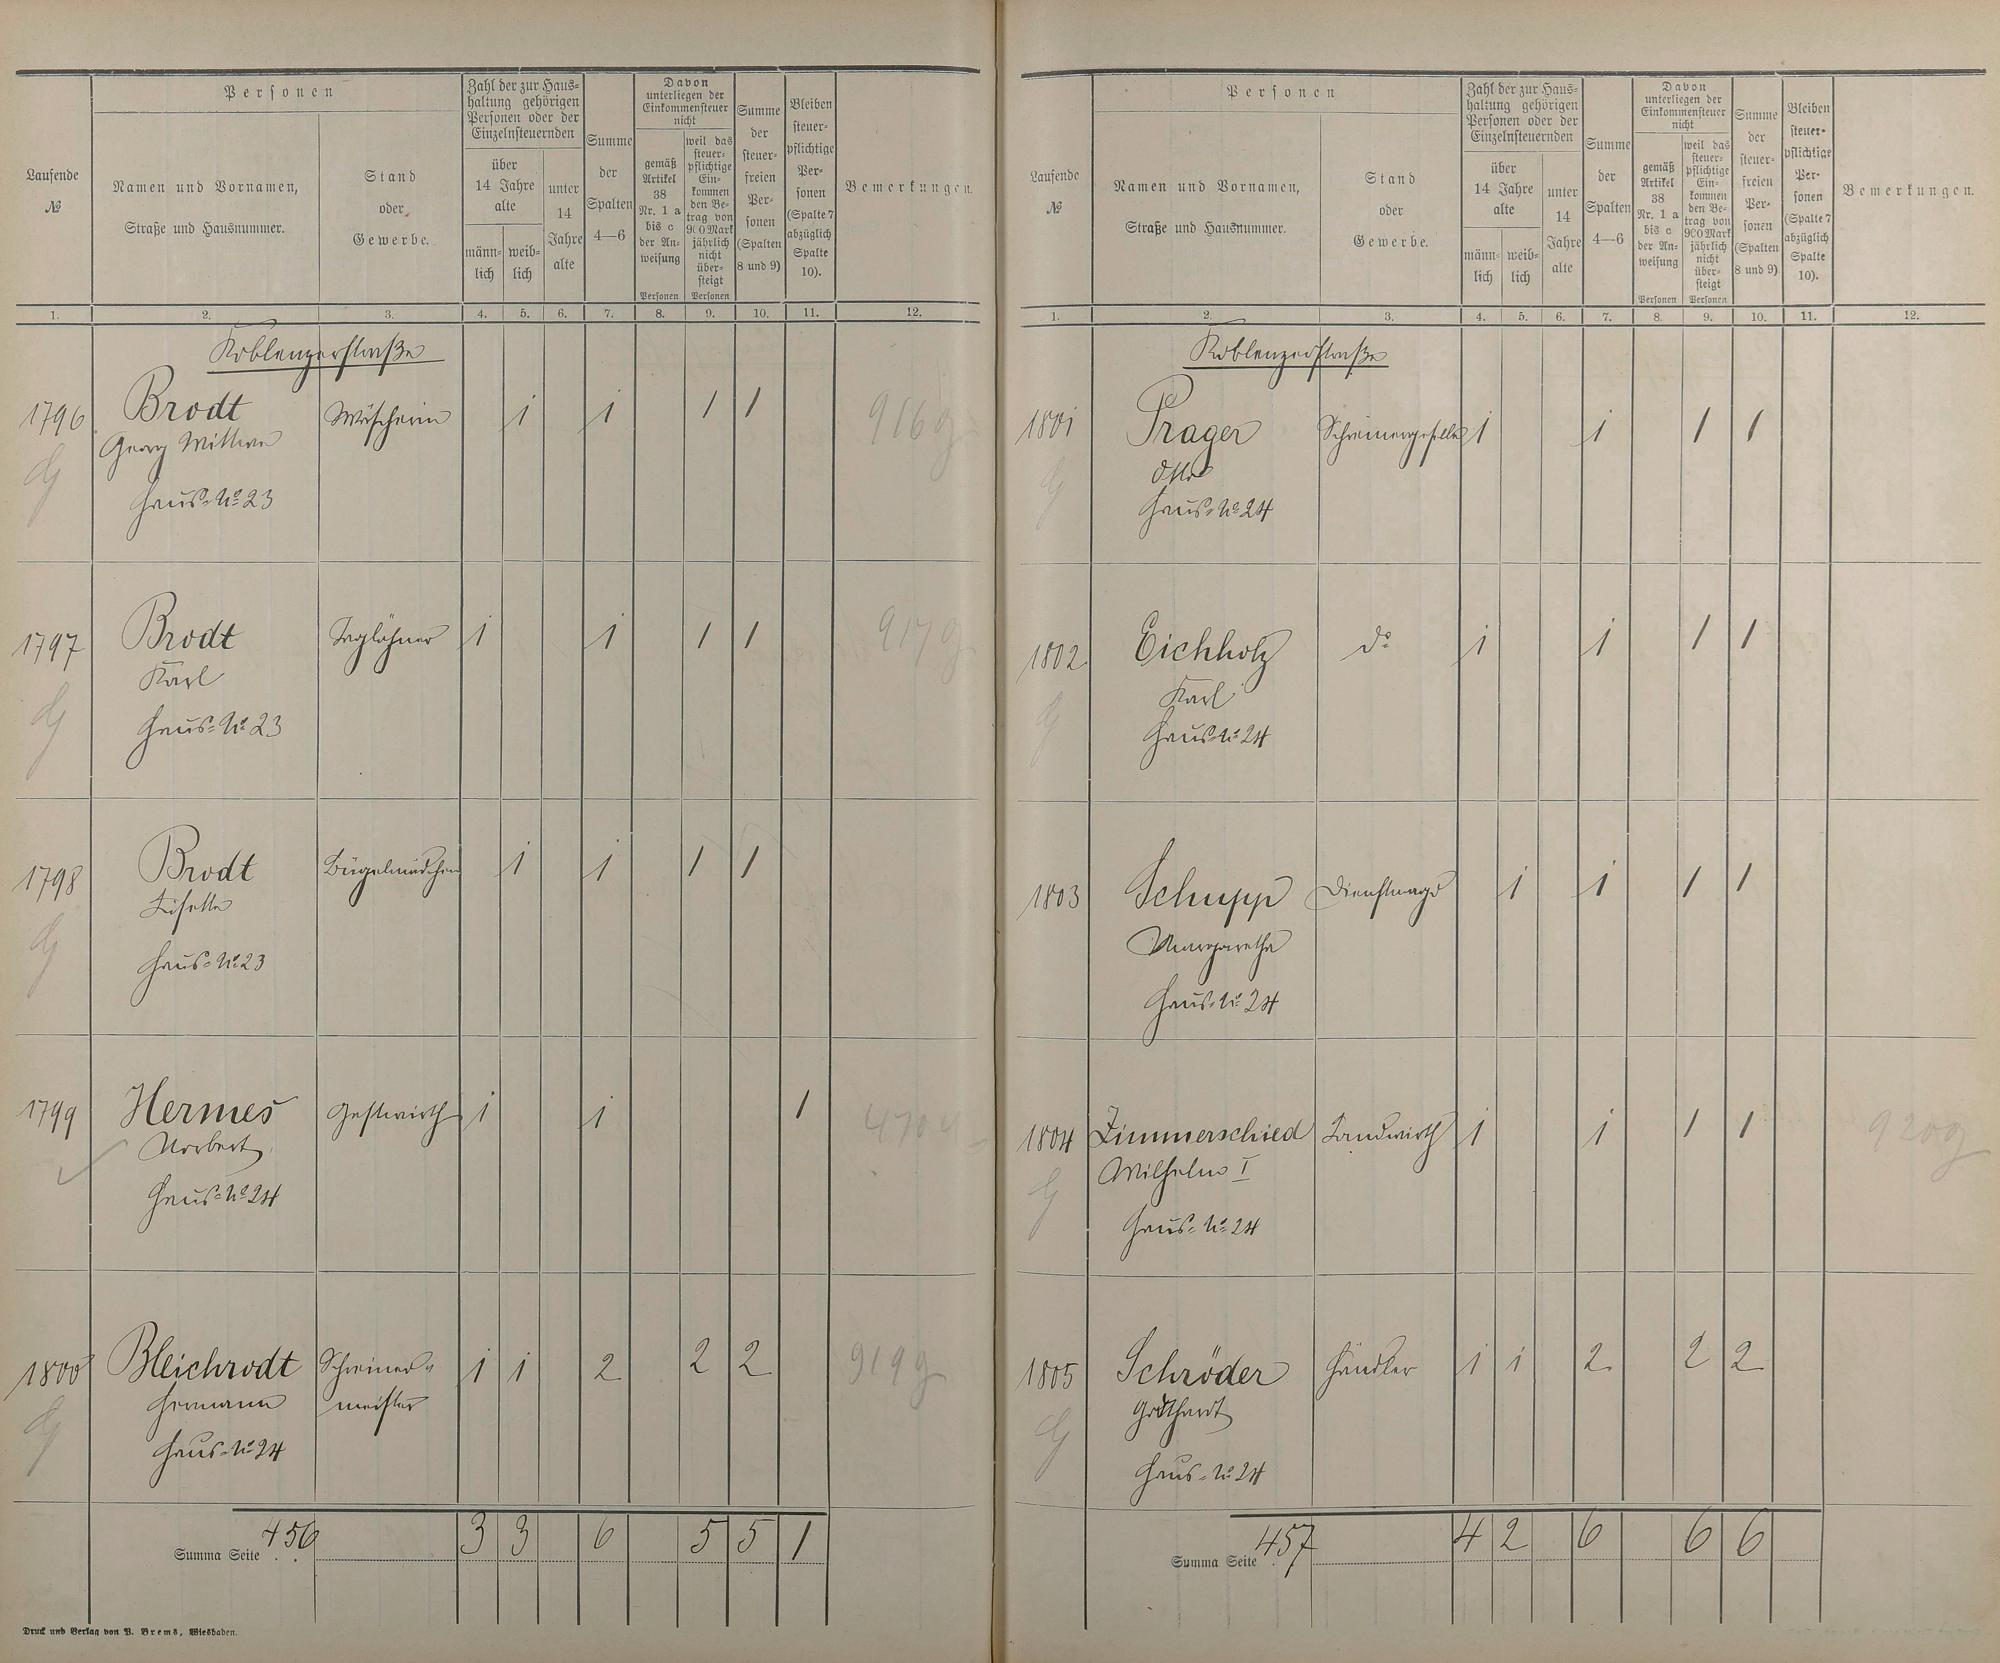 Laufende №
Personen
Namen und Vornamen,
Straße und Hausnummer.
Stand
oder
Gewerbe.
Zahl der zur Haus=
haltung gehörigen
Personen oder der
Einzelnsteuernden
über
14 Jahre
alte
männ=
lich
weib=
lich
unter
14
Jahre
alte
Summe
der
Spalten
4—6
Davon
unterliegen der
Einkommensteuer
nicht
gemäß
Artikel
38
Nr. 1 a
bis c
der An=
weisung
Personen
weil das
steuer=
pflichtige
Ein=
kommen
den Be=
trag von
900 Mark
jährlich
nicht
über=
steigt
Personen
Summe
der
steuer=
freien
Per=
sonen
(Spalten
8 und 9)
Bleiben
steuer=
pflichtige
Per=
sonen
(Spalte 7
abzüglich
Spalte
10).
Bemerkungen.
1. 2. 3. 4. 5. 6. 7. 8. 9. 10. 11. 12.
Koblenzerstraße
1796 Brodt Wäscherin 1 1 1 1 916 g
Georg Wittwe
Haus=No 23
1797 Brodt Taglöhner 1 1 1 1 917 g
Karl
Haus=No 23
1798 Brodt Bügelmädchen 1 1 1 1
Lisette
Haus=No 23
1799 Hermes Gastwirth 1 1 1
Norbert
Haus=No 24
1800 Bleichrodt Schreiner= 1 1 2 2 2 919 g
Hermann meister
Haus=No 24
Summa Seite 456 3 3 6 5 5 1
Druck und Verlag von P. Brems, Wiesbaden.
Laufende №
Personen
Namen und Vornamen,
Straße und Hausnummer.
Stand
oder
Gewerbe.
Zahl der zur Haus=
haltung gehörigen
Personen oder der
Einzelnsteuernden
über
14 Jahre
alte
männ=
lich
weib=
lich
unter
14
Jahre
alte
Summe
der
Spalten
4—6
Davon
unterliegen der
Einkommensteuer
nicht
gemäß
Artikel
38
Nr. 1 a
bis c
der An=
weisung
Personen
weil das
steuer=
pflichtige
Ein=
kommen
den Be=
trag von
900 Mark
jährlich
nicht
über=
steigt
Personen
Summe
der
steuer=
freien
Per=
sonen
(Spalten
8 und 9)
Bleiben
steuer=
pflichtige
Per=
sonen
(Spalte 7
abzüglich
Spalte
10).
Bemerkungen.
1. 2. 3. 4. 5. 6. 7. 8. 9. 10. 11. 12.
Koblenzerstraße
1801 Prager Schreinergeselle 1 1 1 1
Otto
Haus=No 24
1802 Eichholz do 1 1 1 1
Karl
Haus=No 24
1803 Schupp Dienstmagd 1 1 1 1
Margaretha
Haus=No 24
1804 Zimmerschied Landwirth 1 1 1 1 920 g
Wilhelm I
Haus=No 24
1805 Schröder Händler 1 1 2 2 2
Gotthardt
Haus=No 24
Summa Seite 457 4 2 6 6 6